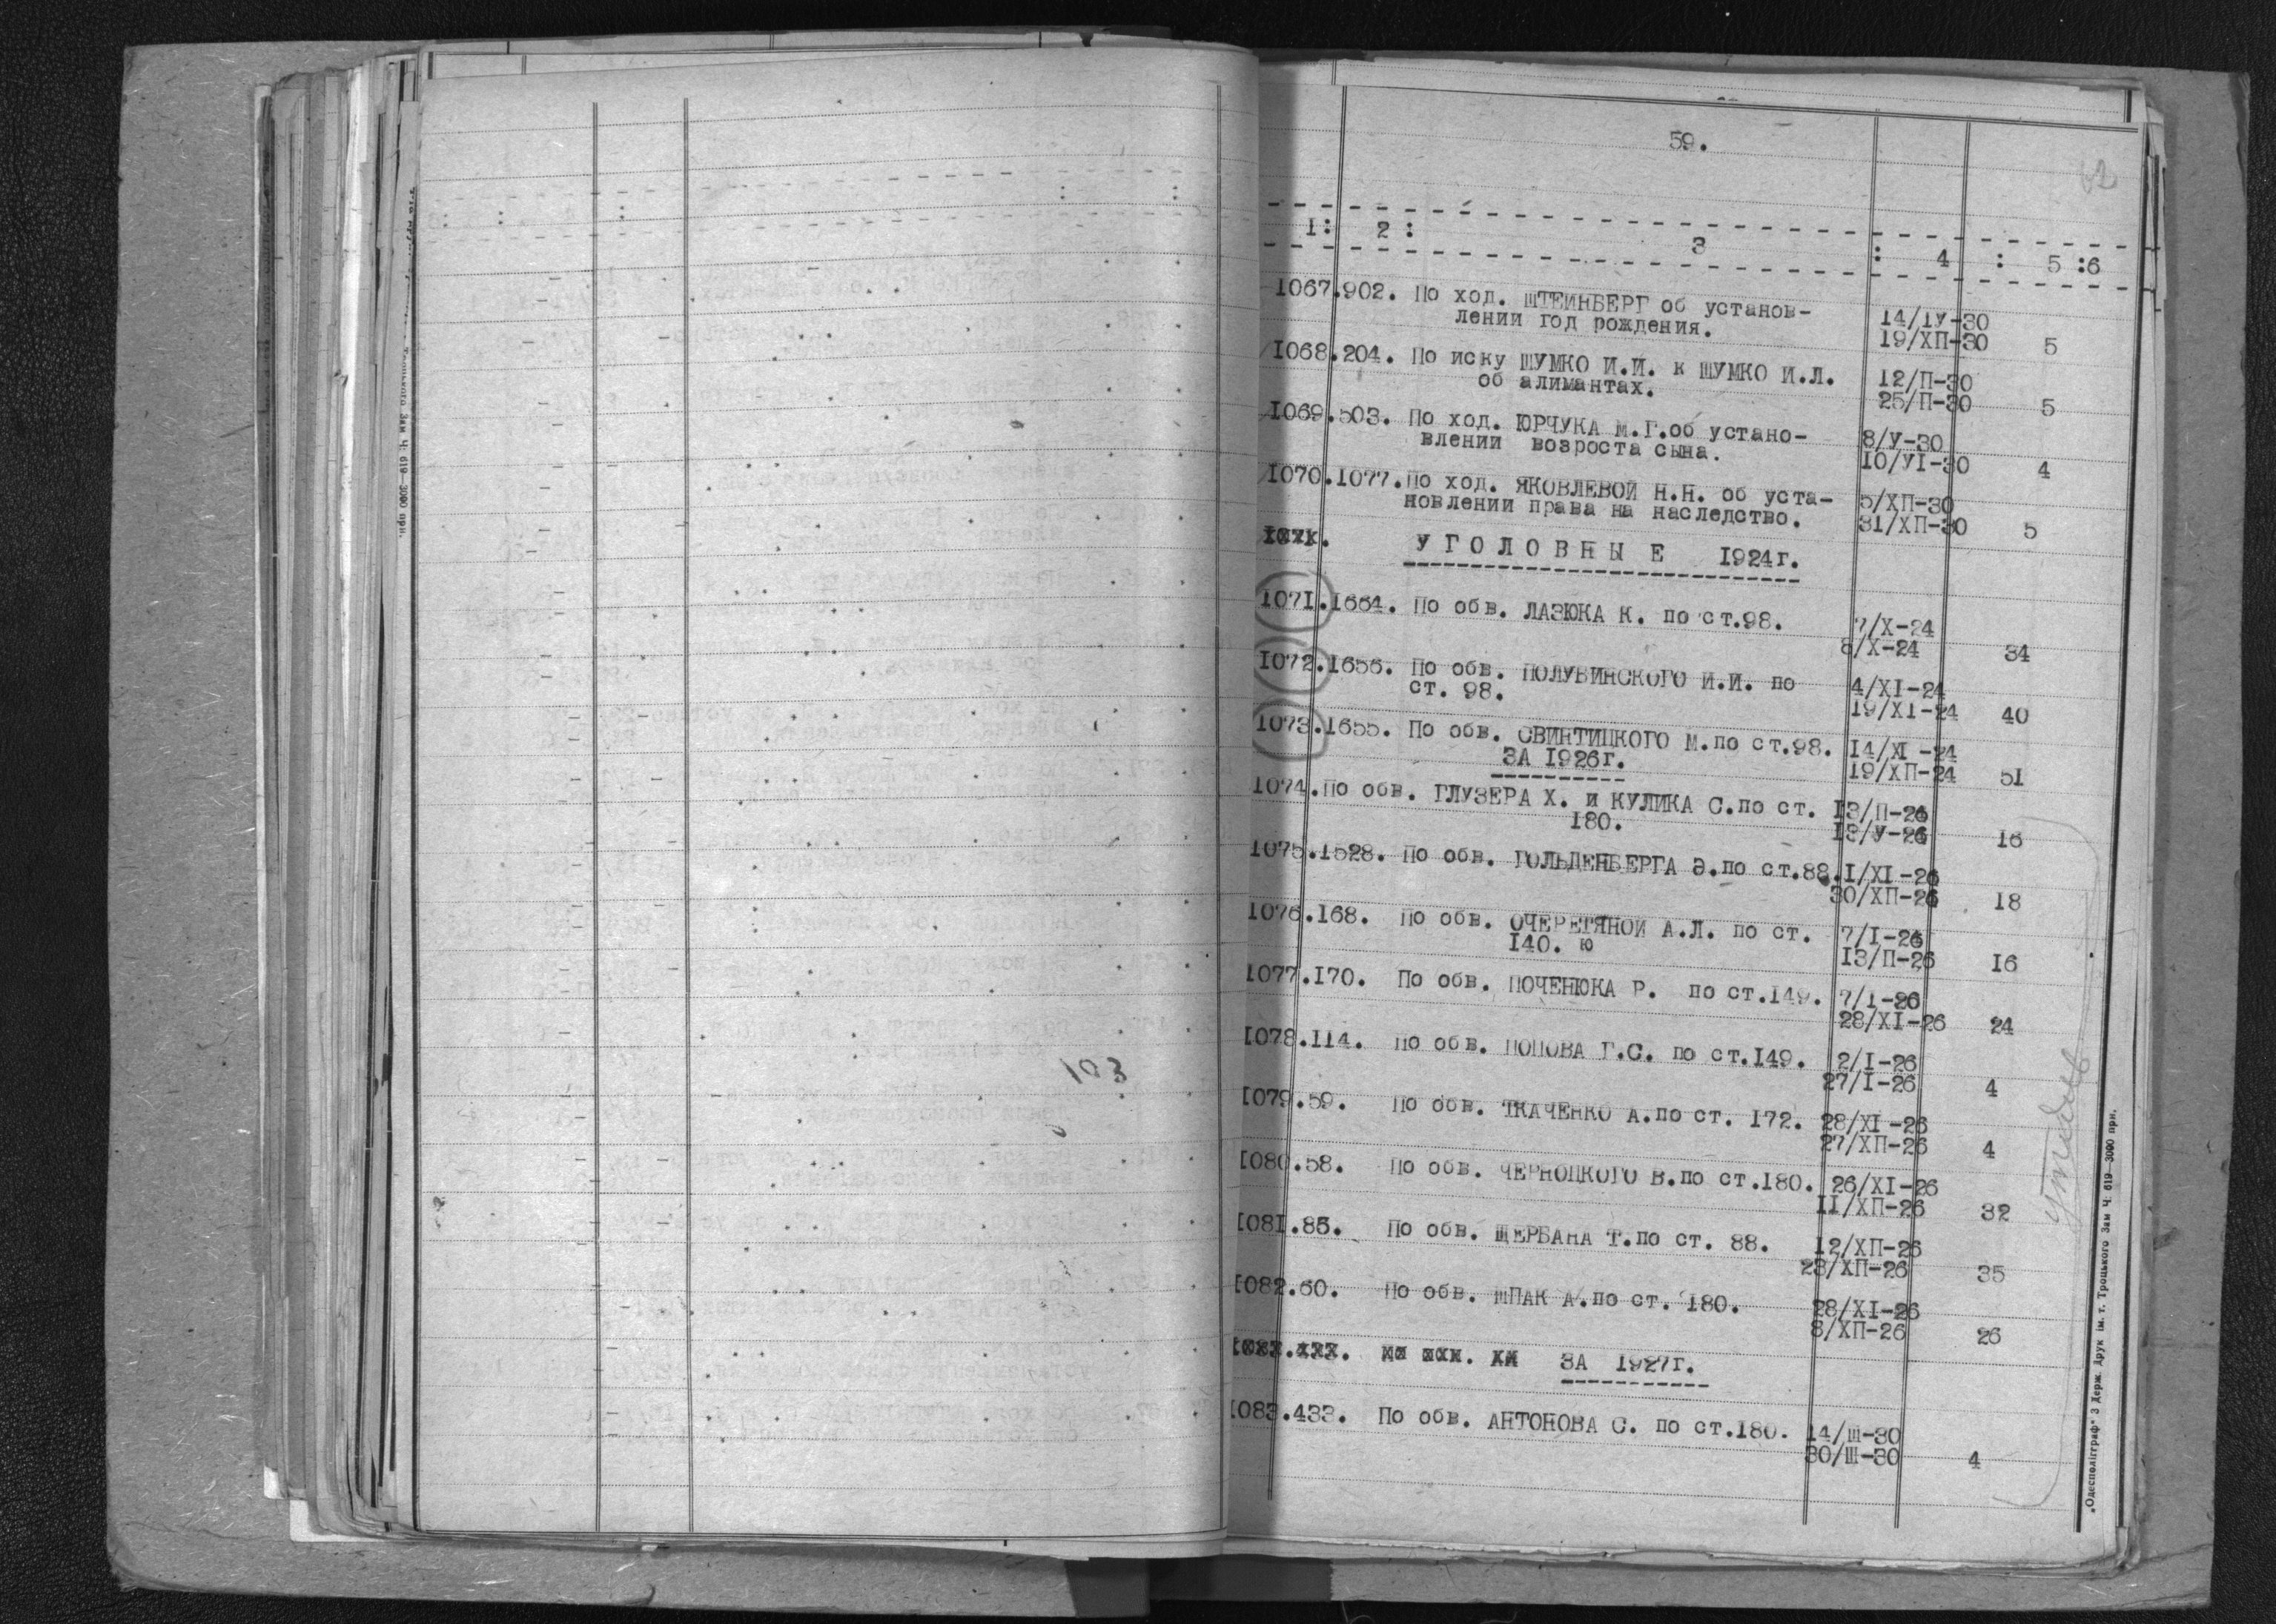 103
59.
62
1: 2: 3 : 4 : 5 :6
1067.902. По ход. ШТЕЙНБЕРГ об установ- 14/IУ-30
лении год рождения. 19/ХП-30 5
1068.204. По иску ШУМКО И.И. к ШУМКО И.Л. 12/П-30
об алимантах. 25/П-30 5
1069.503. По ход. ЮРЧУКА М.Г.об устано- 8/У-30
влении возроста сына. 10/УI-30 4
1070.1077.По ход. ЯКОВЛЕВОЙ Н.Н. об уста- 5/ХП-30
новлении права на наследство. 31/ХП-30 5
УГОЛОВНЫЕ 1924г.
1071.1664. По обв. ЛАЗЮКА К. по ст.98. 7/Х-24
8/Х-24 34
1072.1656. По обв. ПОЛУВИНСКОГО И.И. по 4/ХI-24
ст. 98. 19/ХI-24 40
1073.1655. По обв. СВИНТИЦКОГО М.по ст.98. 14/ХI-24
ЗА 1926г. 19/ХП-24 51
1074.По обв. ГЛУЗЕРА Х. и КУЛИКА С.по ст. 13/П-26
180. 13/У-26 16
1075.1528. По обв. ГОЛЬДЕНБЕРГА Э.по ст.88.1/ХI-26
30/ХП-26 18
1076.168. По обв. ОЧЕРЕТЯНОЙ А.Л. по ст. 7/I-26
140. ю 13/П-26 16
1077.170. По обв. ПОЧЕНЮКА Р. по ст.149. 7/I-26
28/ХI-26 24
1078.114. По обв. ПОПОВА Г.С. по ст.149. 2/I-26
27/I-26 4
1079.59. По обв. ТКАЧЕНКО А.по ст. 172. 28/ХI-26
27/ХП-26 4
1080.58. По обв. ЧЕРНОЦКОГО В.по ст.180. 26/ХI-26
11/ХП-26 32
1081.85. По обв. ЩЕРБАНА Т.по ст. 88. 12/ХП-26
23/ХП-26 35
1082.60. По обв. ШПАК А.по ст. 180. 28/ХI-26
8/ХП-26 26
ЗА 1927г.
1083.433. По обв. АНТОНОВА С. по ст.180. 14/Ш-30
30/Ш-30 4
„Одесполіграф" 3 Держ. Друк ім. т. Троцького Зам Ч. 619—3000 прн.
Троцького Зам Ч. 619—3000 прн.